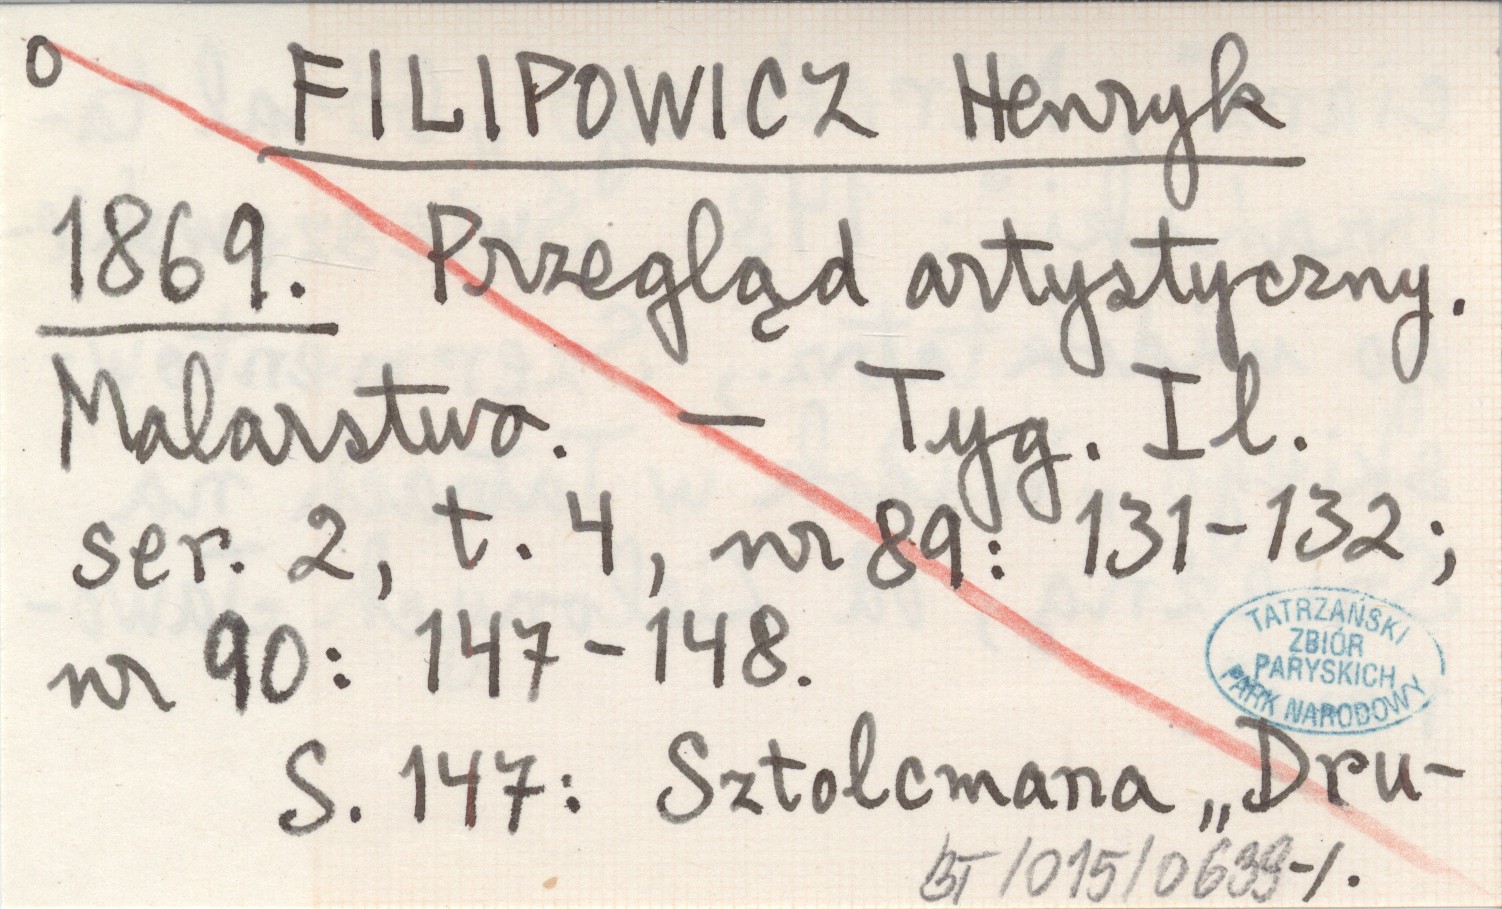 o FILIPOWICZ Henryk
1869. Przegląd artystyczny.
Malarstwo. – Tyg. Il.
ser. 2, t. 4, nr 89: 131–132;
nr 90: 147–148.
TATRZAŃSKI
ZBIÓR
PARYSKICH
PARK NARODOWY
S. 147: Sztolcmana „Dru-
BT/015/0639-/.